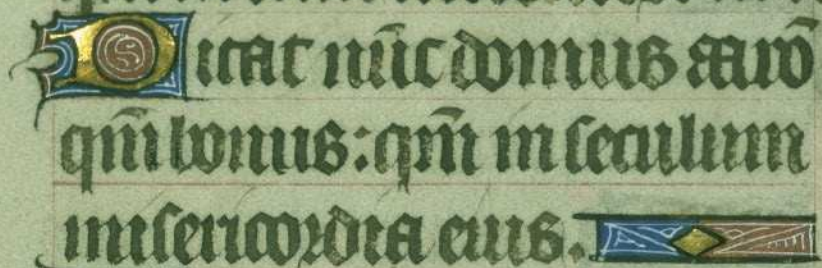 Dicat nūc domus aarō
qm̄ bonus: qm̄ in seculum
misericordia eius.